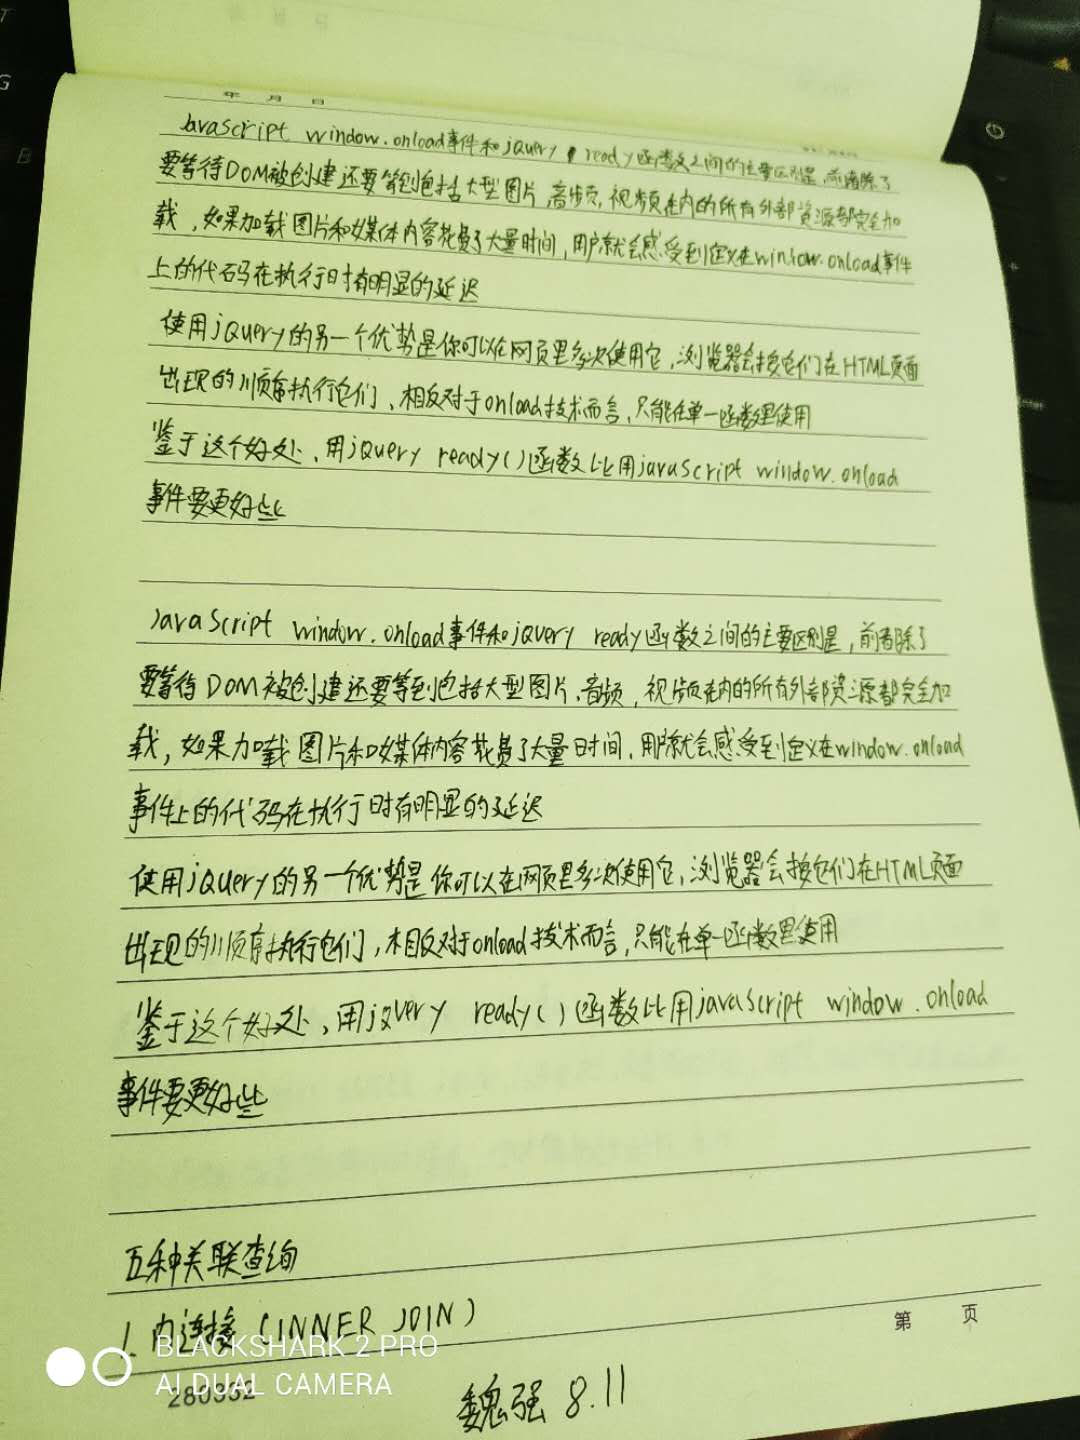 年 月 日
JavaScript window.onload事件和jQuery ready函数之间的主要区别是,前者除了
要等待DOM被创建还要等到包括大型图片,音频,视频在内的所有外部资源都完全加
载,如果加载图片和媒体内容花费了大量时间,用户就会感受到定义在window.onload事件
上的代码在执行时有明显的延迟
使用jQuery的另一个优势是你可以在网页里多次使用它,浏览器会按它们在HTML页面
出现的顺序执行它们、相反对于onload技术而言,只能在单一函数里使用
鉴于这个好处、用jQuery ready()函数比用javaScript window.onload
事件要更好些
JavaScript window.onload事件和jQuery ready函数之间的主要区别是,前者除了
要等待DOM被创建还要等到包括大型图片、音频,视频在内的所有外部资源都完全加
载,如果加载图片和媒体内容花费了大量时间,用户就会感受到定义在window.onload
事件上的代码在执行时有明显的延迟
使用jQuery的另一个优势是你可以在网页里多次使用它,浏览器会按它们在HTML页面
出现的顺序执行它们,相反对于onload技术而言,只能在单一函数里使用
鉴于这个好处,用jQuery ready()函数比用javaScript window.onload
事件要更好些
五种关联查询
1.内连接(INNER JOIN)
第 页
BLACKSHARK 2 PRO
AI DUAL CAMERA
280932
魏强 8.11